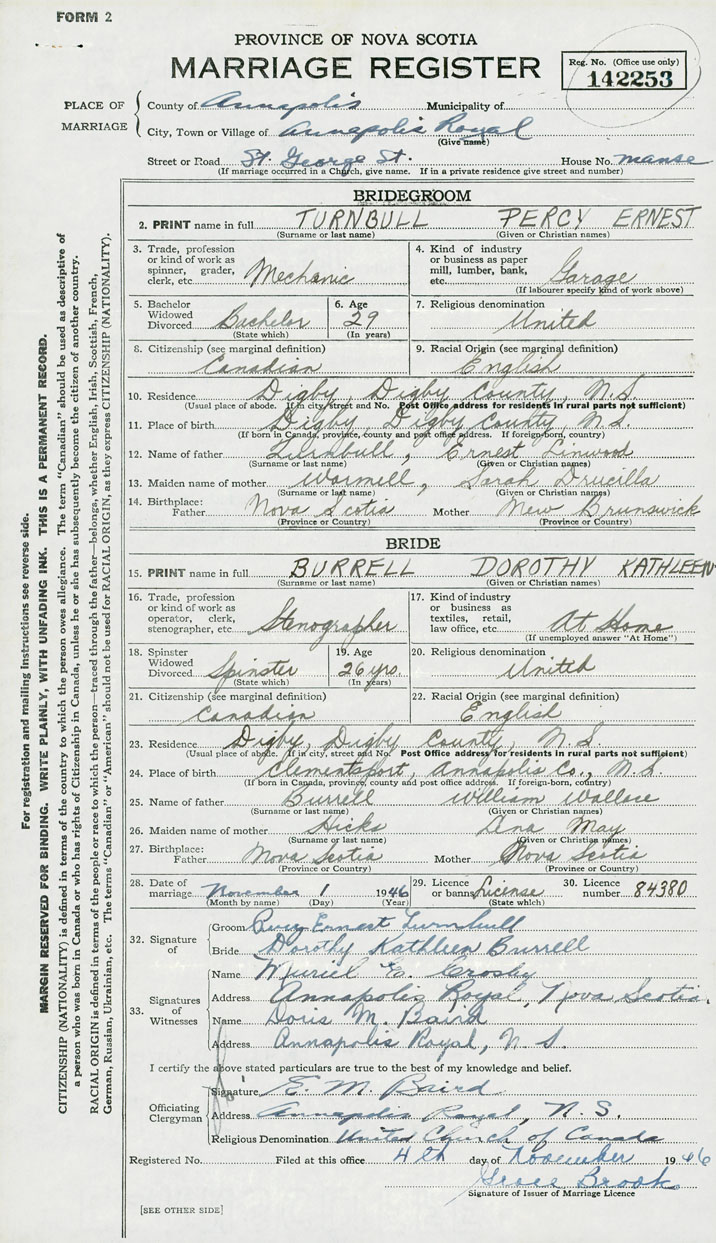 FORM 2
PROVINCE OF NOVA SCOTIA
MARRIAGE REGISTER
Reg. No. (Office use only)
142253
PLACE OF MARRIAGE
County of Annapolis Municipality of
City, Town or Village of Annapolis Royal
(Give name)
Street or Road St. George St. House No. manse
(If marriage occurred in a Church, give name. If in a private residence give street and number)
BRIDEGROOM
2. PRINT name in full TURNBULL PERCY ERNEST
(Surname or last name) (Given or Christian names)
3. Trade, profession or kind of work as spinner, grader, clerk, etc. Mechanic
4. Kind of industry or business as paper mill, lumber, bank, etc. Garage
(If labourer specify kind of work above)
5. Bachelor Widowed Divorced Bachelor
(State which)
6. Age 29
(In years)
7. Religious denomination
United
8. Citizenship (see marginal definition)
Canadian
9. Racial Origin (see marginal definition)
English
10. Residence Digby, Digby County, N.S.
(Usual place of abode. If in city, street and No. Post Office address for residents in rural parts not sufficient)
11. Place of birth Digby, Digby County, N.S.
(If born in Canada, province, county and post office address. If foreign-born, country)
12. Name of father Turnbull, Ernest Linwood
(Surname or last name) (Given or Christian names)
13. Maiden name of mother Wormell, Sarah Drucilla
(Surname or last name) (Given or Christian names)
14. Birthplace: Father Nova Scotia Mother New Brunswick
(Province or Country) (Province or Country)
BRIDE
15. PRINT name in full BURRELL DOROTHY KATHLEEN
(Surname or last name) (Given or Christian names)
16. Trade, profession or kind of work as operator, clerk, stenographer, etc. Stenographer
17. Kind of industry or business as textiles, retail, law office, etc. At Home
(If unemployed answer "At Home")
18. Spinster Widowed Divorced Spinster
(State which)
19. Age 26 yrs.
(In years)
20. Religious denomination
United
21. Citizenship (see marginal definition)
Canadian
22. Racial Origin (see marginal definition)
English
23. Residence Digby, Digby County, N.S.
(Usual place of abode. If in city, street and No. Post Office address for residents in rural parts not sufficient)
24. Place of birth Clementsport, Annapolis Co., N.S.
(If born in Canada, province, county and post office address. If foreign-born, country)
25. Name of father Burrell William Wallace
(Surname or last name) (Given or Christian names)
26. Maiden name of mother Hicks Ana May
(Surname or last name) (Given or Christian names)
27. Birthplace: Father Nova Scotia Mother Nova Scotia
(Province or Country) (Province or Country)
28. Date of marriage November 1 1946
(Month by name) (Day) (Year)
29. Licence or banns License
(State which)
30. Licence number 84380
32. Signature of
Groom Percy Ernest Turnbull
Bride Dorothy Kathleen Burrell
33. Signatures of Witnesses
Name Muriel E. Crosby
Address Annapolis Royal, Nova Scotia.
Name Doris M. Baird
Address Annapolis Royal, N.S.
I certify the above stated particulars are true to the best of my knowledge and belief.
Officiating Clergyman
Signature E. M. Baird
Address Annapolis Royal, N.S.
Religious Denomination United Church of Canada
Registered No. Filed at this office 4th day of November 1946
Grace Brook
Signature of Issuer of Marriage Licence
[SEE OTHER SIDE]
For registration and mailing instructions see reverse side.
MARGIN RESERVED FOR BINDING. WRITE PLAINLY, WITH UNFADING INK. THIS IS A PERMANENT RECORD.
CITIZENSHIP (NATIONALITY) is defined in terms of the country to which the person owes allegiance. The term "Canadian" should be used as descriptive of
a person who was born in Canada or who has rights of Citizenship in Canada, unless he or she has subsequently become the citizen of another country.
RACIAL ORIGIN is defined in terms of the people or race to which the person—traced through the father—belongs, whether English, Irish, Scottish, French,
German, Russian, Ukrainian, etc. The terms "Canadian" or "American" should not be used for RACIAL ORIGIN, as they express CITIZENSHIP (NATIONALITY).